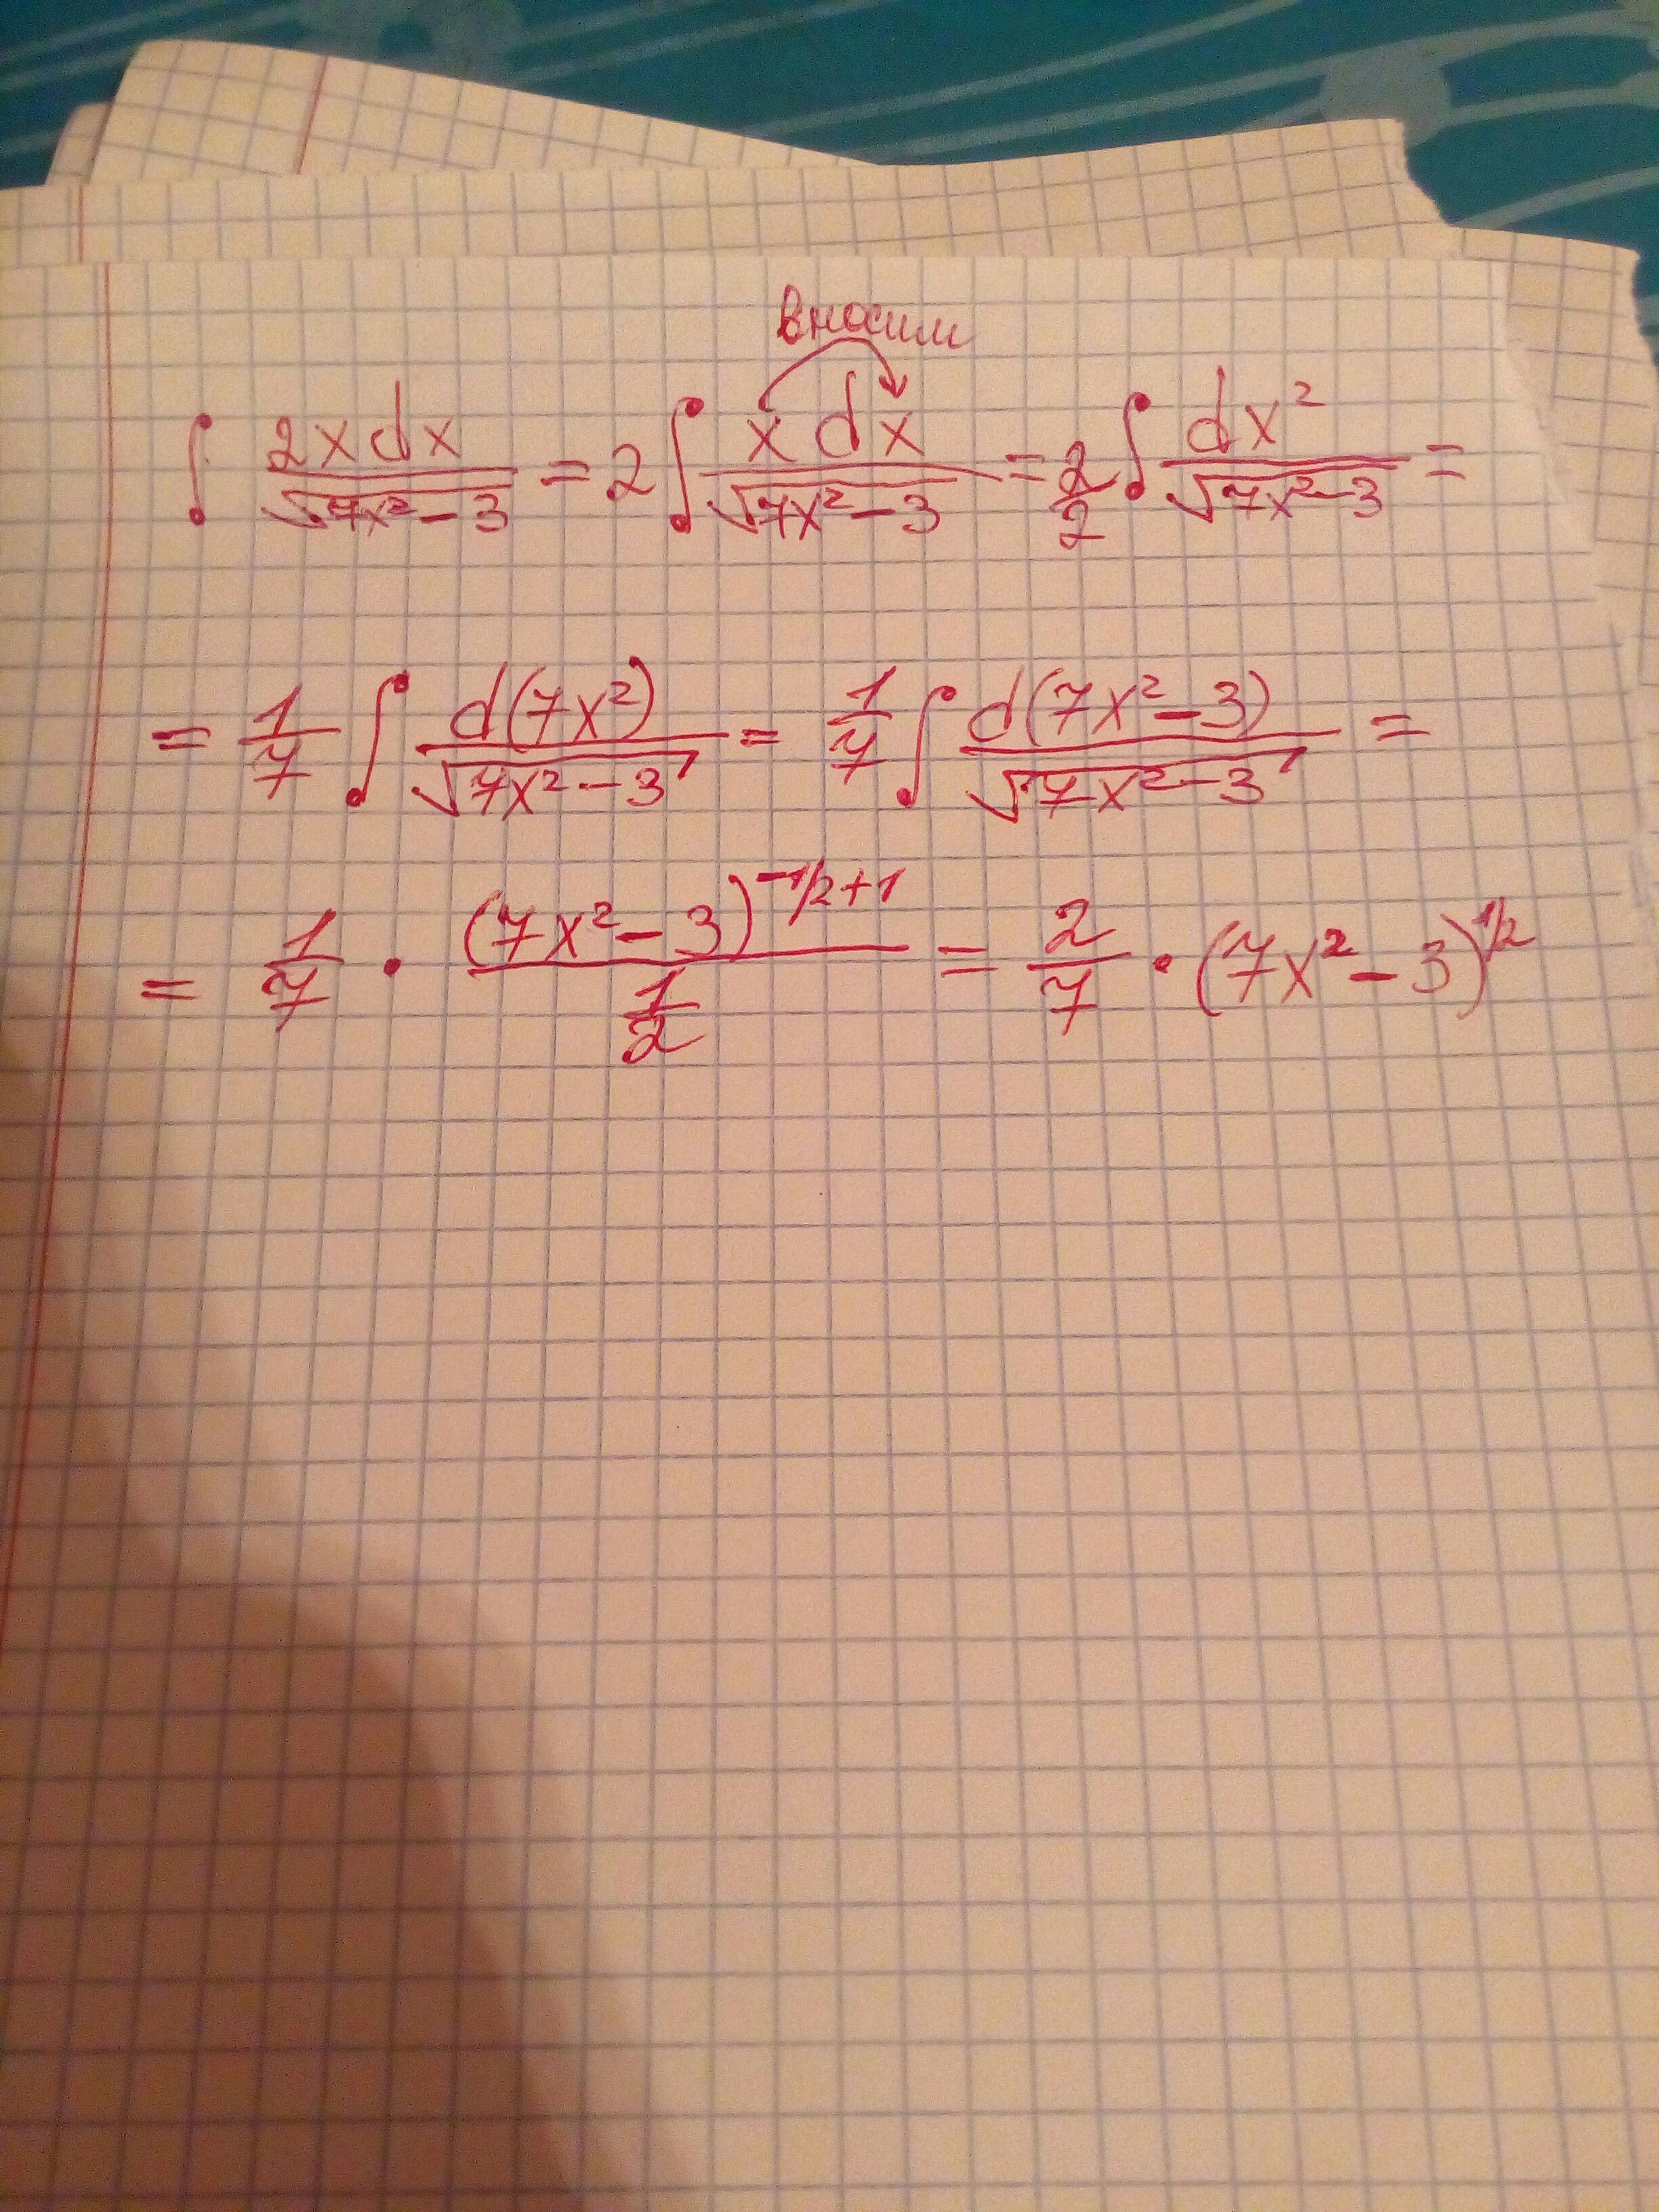 вносим
∫ 2xdx/√(7x²-3) = 2∫ x dx/√(7x²-3) = 2/2 ∫ dx²/√(7x²-3) =
= 1/7 ∫ d(7x²)/√(7x²-3) = 1/7 ∫ d(7x²-3)/√(7x²-3) =
= 1/7 · (7x²-3)^(-1/2+1)/(1/2) = 2/7 · (7x²-3)^(1/2)